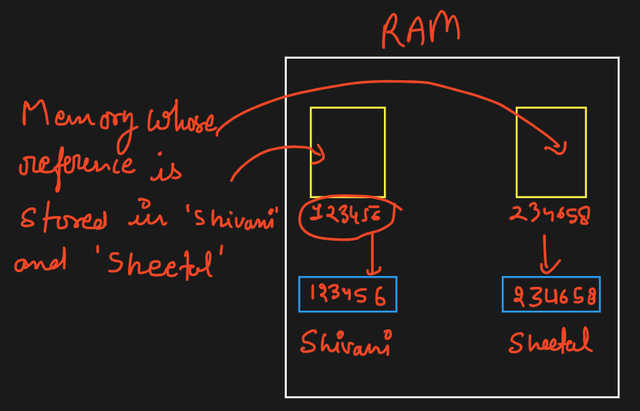 RAM
Memory whose
reference is
stored in 'Shivani'
and 'Sheetal'
123456
234658
123456
234658
Shivani
Sheetal